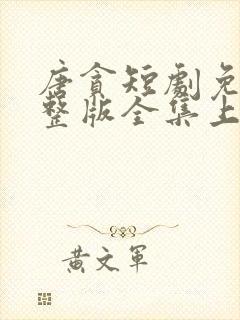 唐貪短劇免
整版全集上
黃文軍